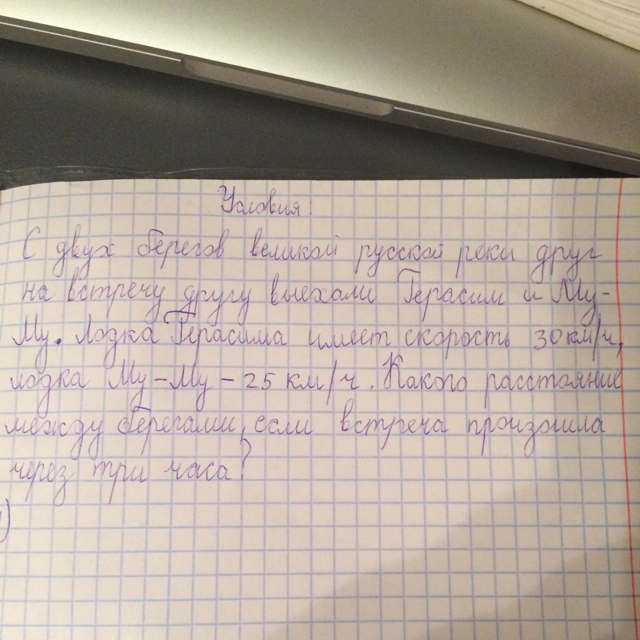 Условия:
С двух берегов великой русской реки друг
на встречу другу выехали Герасим и Му-
Му. Лодка Герасима имеет скорость 30 км/ч,
лодка Му-Му - 25 км/ч. Какого расстояние
между берегами, если встреча произошла
через три часа?
)